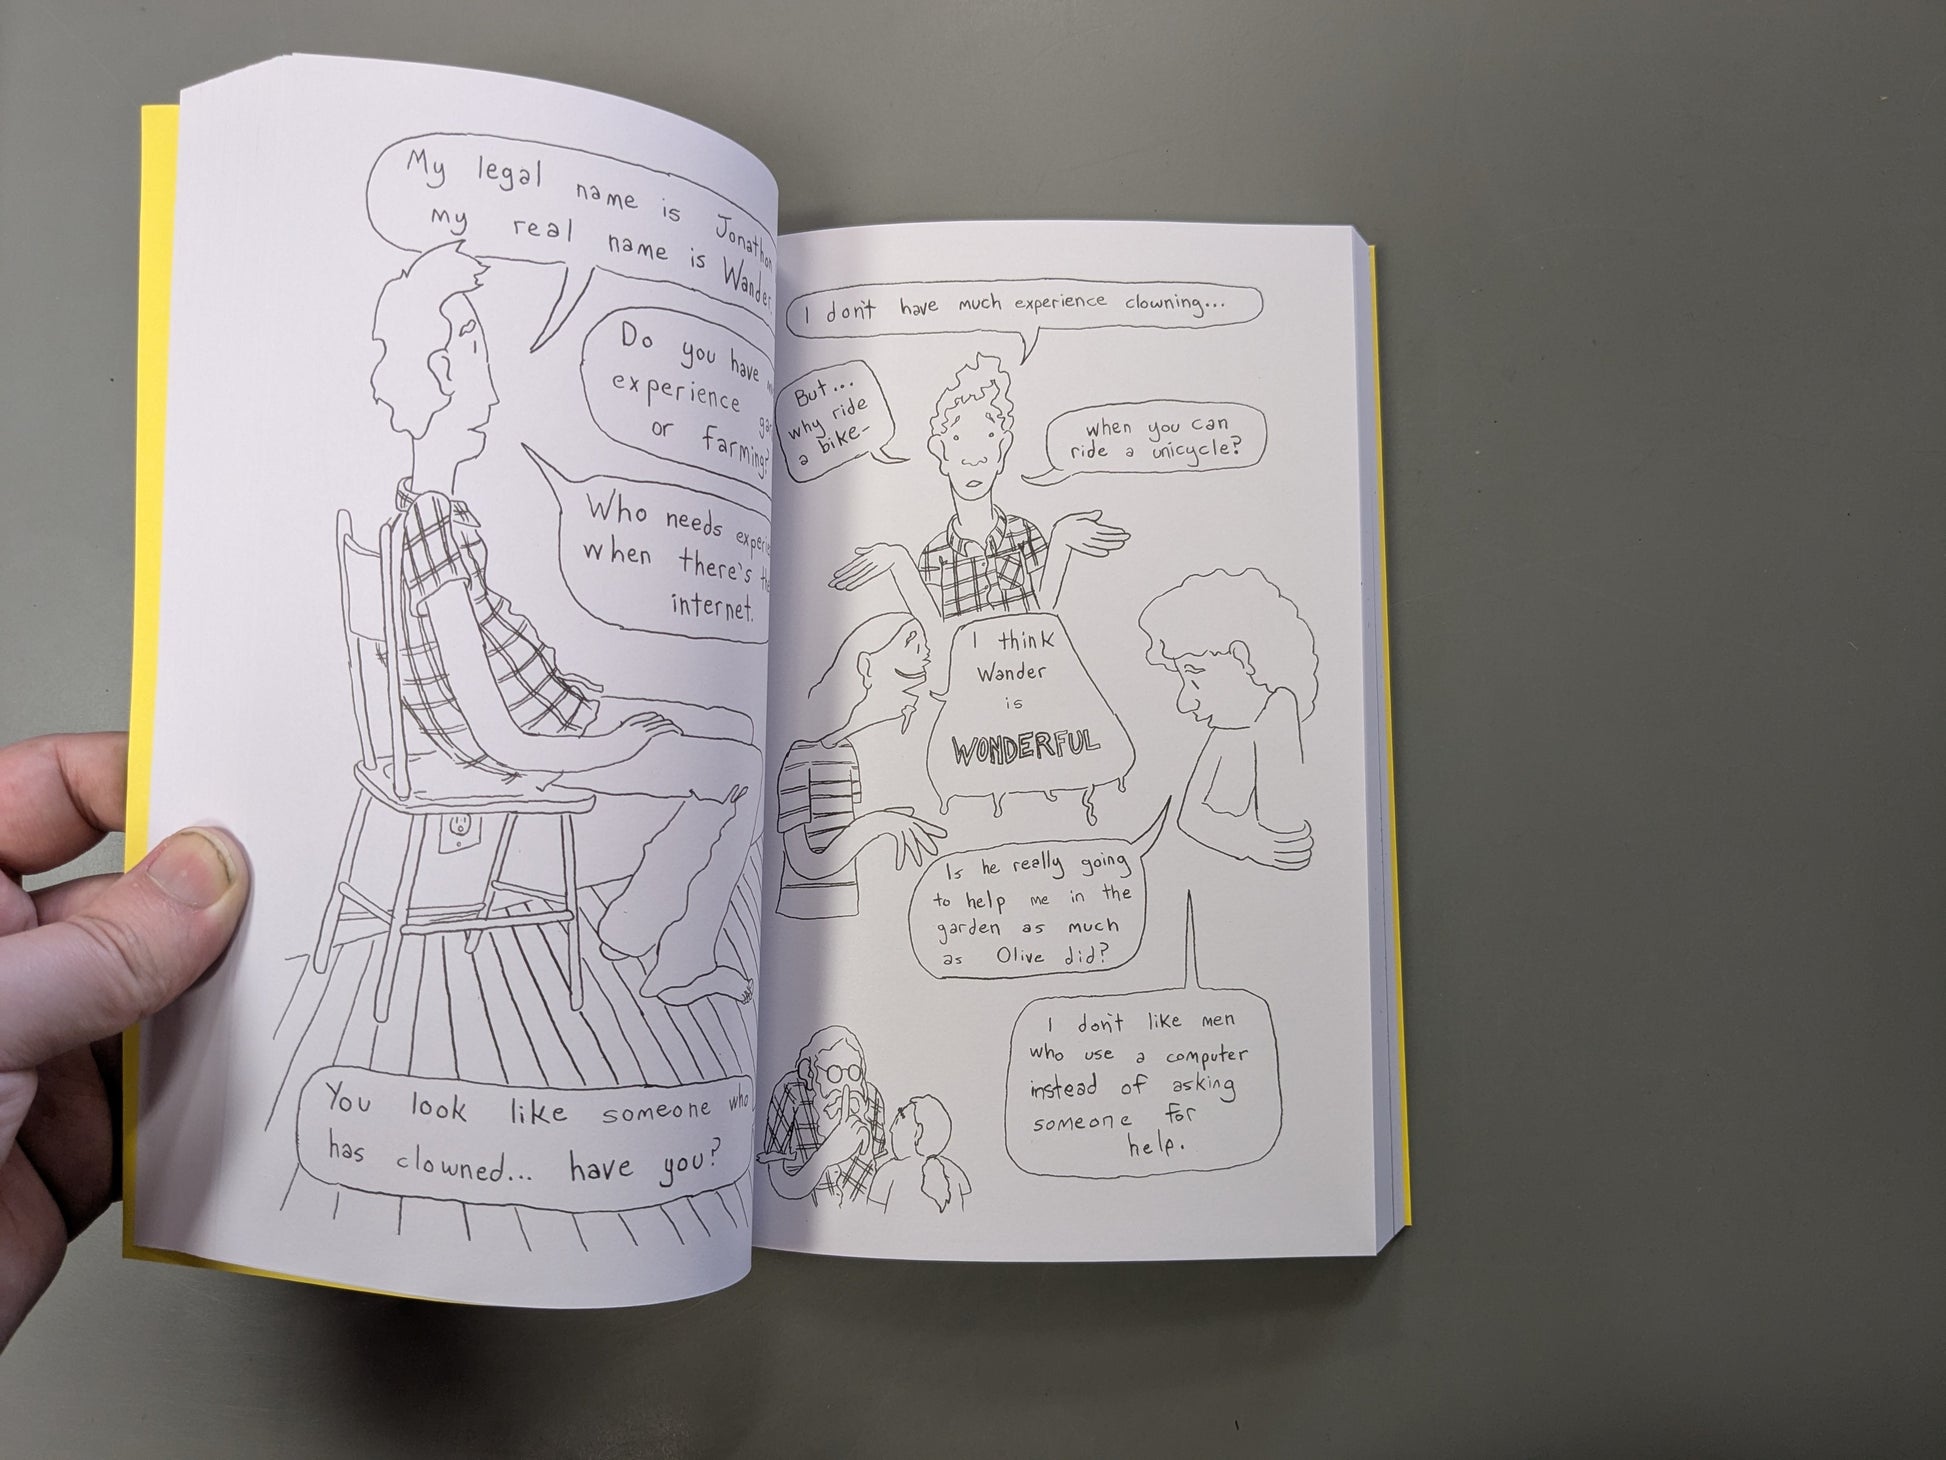 My legal name is Jonathon
my real name is Wander.
Do you have
experience
or farming?
Who needs
when there's
internet.
You look like someone who
has clowned... have you?
I don't have much experience clowning...
But...
why ride
a bike-
when you can
ride a unicycle?
I think
Wander
is
WONDERFUL
Is he really going
to help me in the
garden as much
as Olive did?
I don't like men
who use a computer
instead of asking
someone for
help.